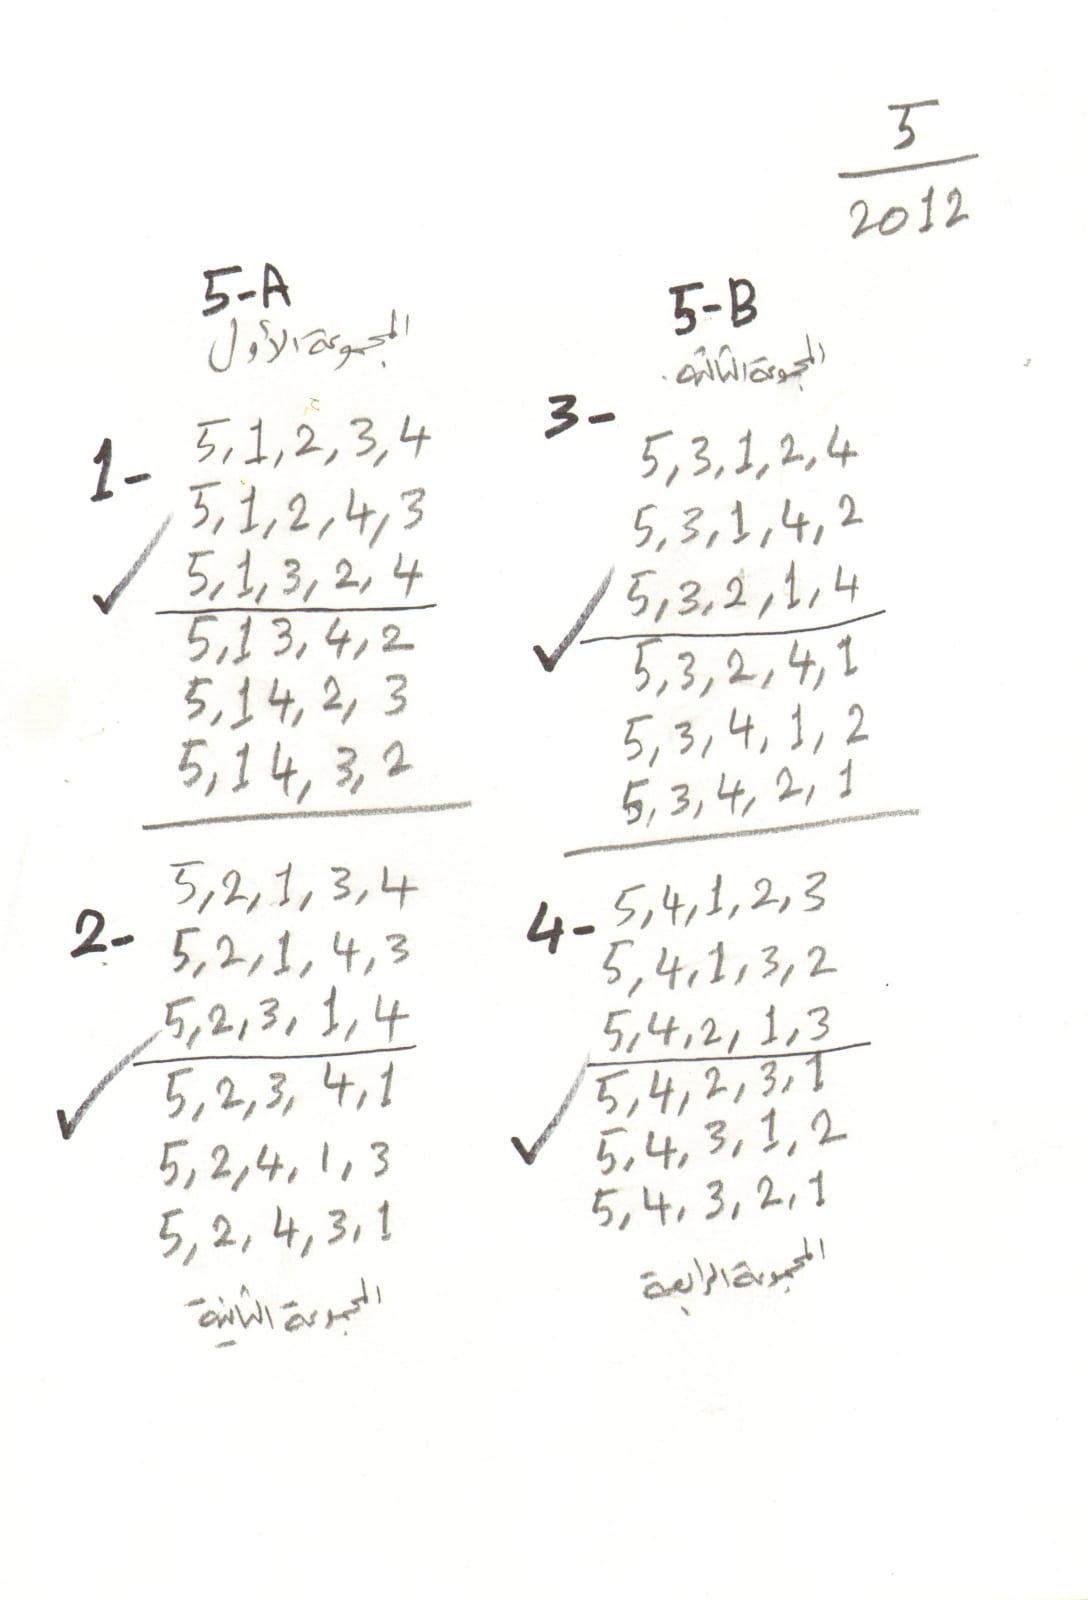 5
2012
5-A
المجموعة الأولى
1-
5,1,2,3,4
5,1,2,4,3
5,1,3,2,4
5,1 3,4,2
5,1 4,2,3
5,1 4,3,2
2-
5,2,1,3,4
5,2,1,4,3
5,2,3,1,4
5,2,3,4,1
5,2,4,1,3
5,2,4,3,1
المجموعة الثانية
5-B
المجموعة الثالثة
3-
5,3,1,2,4
5,3,1,4,2
5,3,2,1,4
5,3,2,4,1
5,3,4,1,2
5,3,4,2,1
4-
5,4,1,2,3
5,4,1,3,2
5,4,2,1,3
5,4,2,3,1
5,4,3,1,2
5,4,3,2,1
المجموعة الرابعة